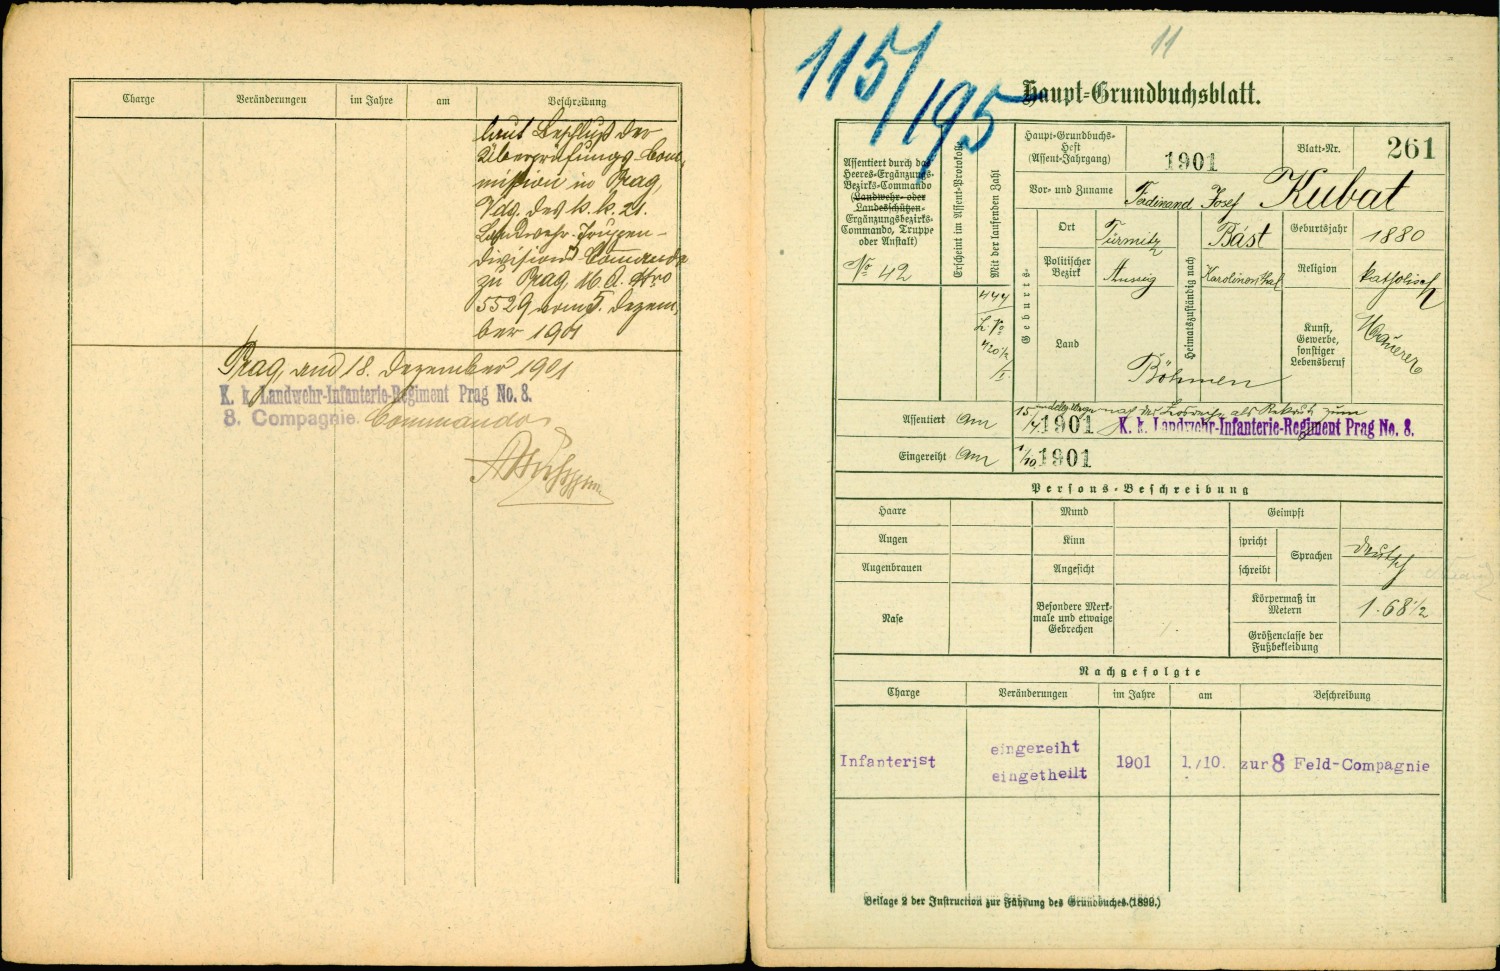 Charge Veränderungen im Jahre am Beschreibung
laut Beschluß der
Überprüfungs-Com-
mission in Prag,
Vdg. des k. k. 21.
Landwehr-Truppen-
divisions Commando
zu Prag, M. A. Nro
5529 vom 5. Dezem-
ber 1901
Prag, am 18. Dezember 1901
K. k. Landwehr-Infanterie-Regiment Prag No. 8.
8. Compagnie. Commando
115/195
11
Haupt-Grundbuchsblatt.
Assentiert durch das
Heeres-Ergänzungs-
Bezirks-Commando
(Landwehr- oder
Landesschützen-
Ergänzungsbezirks-
Commando, Truppe
oder Anstalt)
No 42
Erscheint im Assent-Protokolle
Mit der laufenden Zahl
444
Haupt-Grundbuchs-
Heft
(Assent-Jahrgang)
1901
Blatt-Nr.
261
Vor- und Zuname
Ferdinand Josef Kubat
Geburts-
Ort
Türmitz
Heimatszuständig nach
Bašt
Geburtsjahr
1880
Politischer
Bezirk
Aussig
Karolinenthal
Religion
katholisch
Land
Böhmen
Kunst,
Gewerbe,
sonstiger
Lebensberuf
Maurer
Assentiert Am
15/4 1901
nach der Losreihe als Rekrut zum
K. k. Landwehr-Infanterie-Regiment Prag No. 8.
Eingereiht Am
1/10 1901
Persons-Beschreibung
Haare Mund Geimpft
Augen Kinn spricht Sprachen deutsch
Augenbrauen Angesicht schreibt
Nase
Besondere Merk-
male und etwaige
Gebrechen
Körpermaß in
Metern
1·68 1/2
Größenclasse der
Fußbekleidung
Nachgefolgte
Charge Veränderungen im Jahre am Beschreibung
Infanterist eingereiht 1901 1./10. zur 8 Feld-Compagnie
eingetheilt
Beilage 2 der Instruction zur Führung des Grundbuches.(1899.)